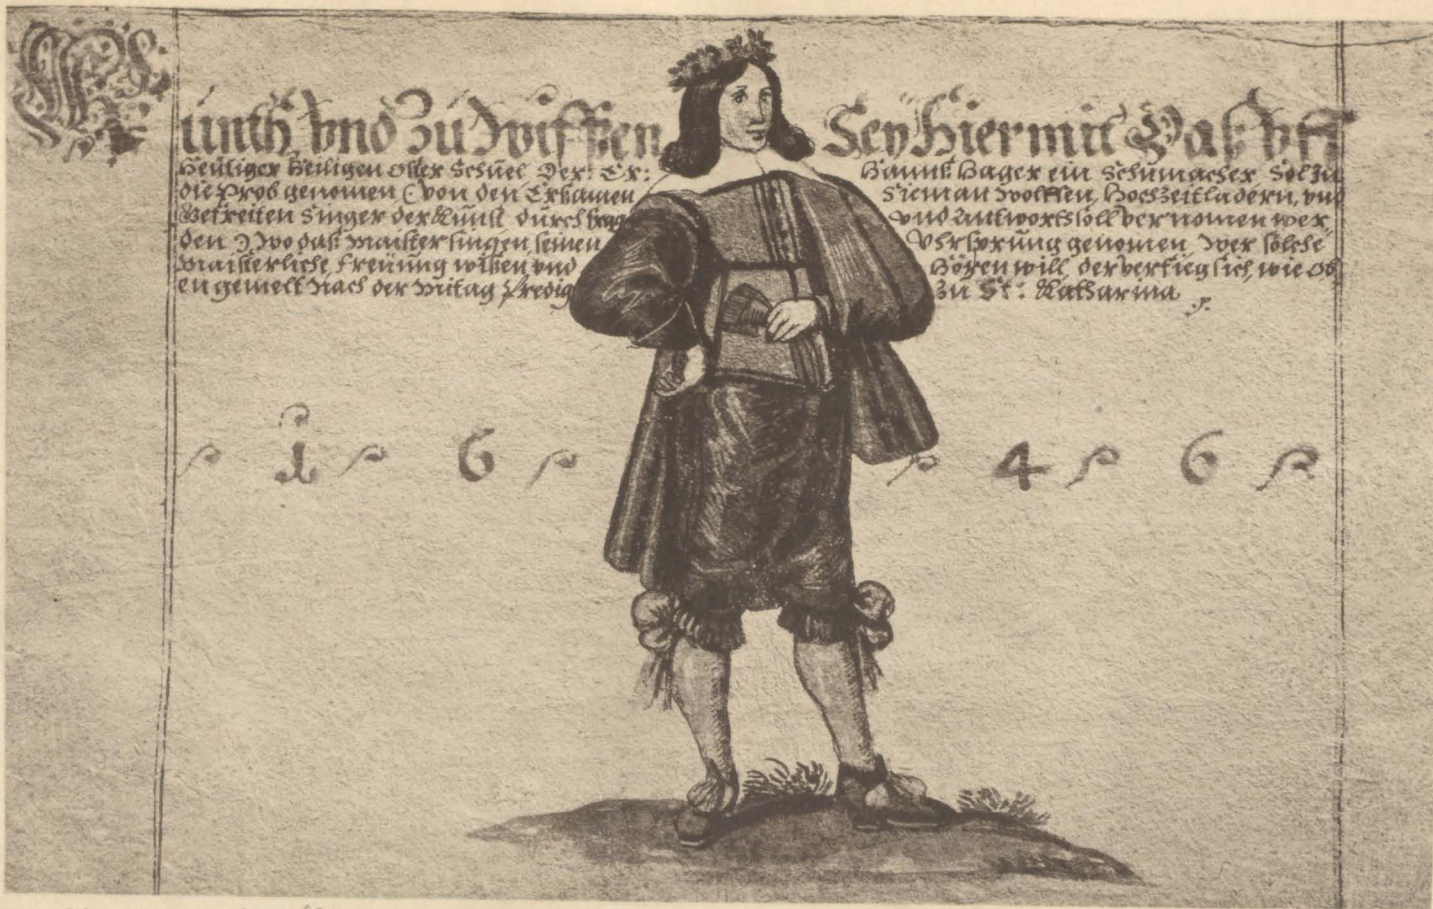 Kunth, vnd zu wissen Sey hiermit Das vff
heutiger heiligen Oster Schuel Der: Er: Hannß Hager ein Schumacher Sol zu
die Prob genomen (von den Ersamen Sieman Wolffen, Hochzeitladern, vnd
Befreiten Singer der Kunst durch frag vnd Antwort soll vernomen wer
den) wo daß Maistersingen seinen Vhrsprung genomen, wer solche
Maisterliche freüung wißen vnd Hören will, der verfüg sich, wie Ob
en gemelt Nach der Mitag Predig zu St: Katharina
1 6 4 6